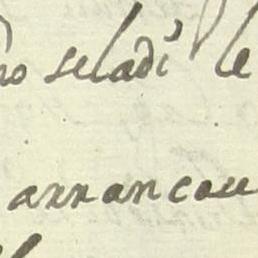 no seladi le
arrancou